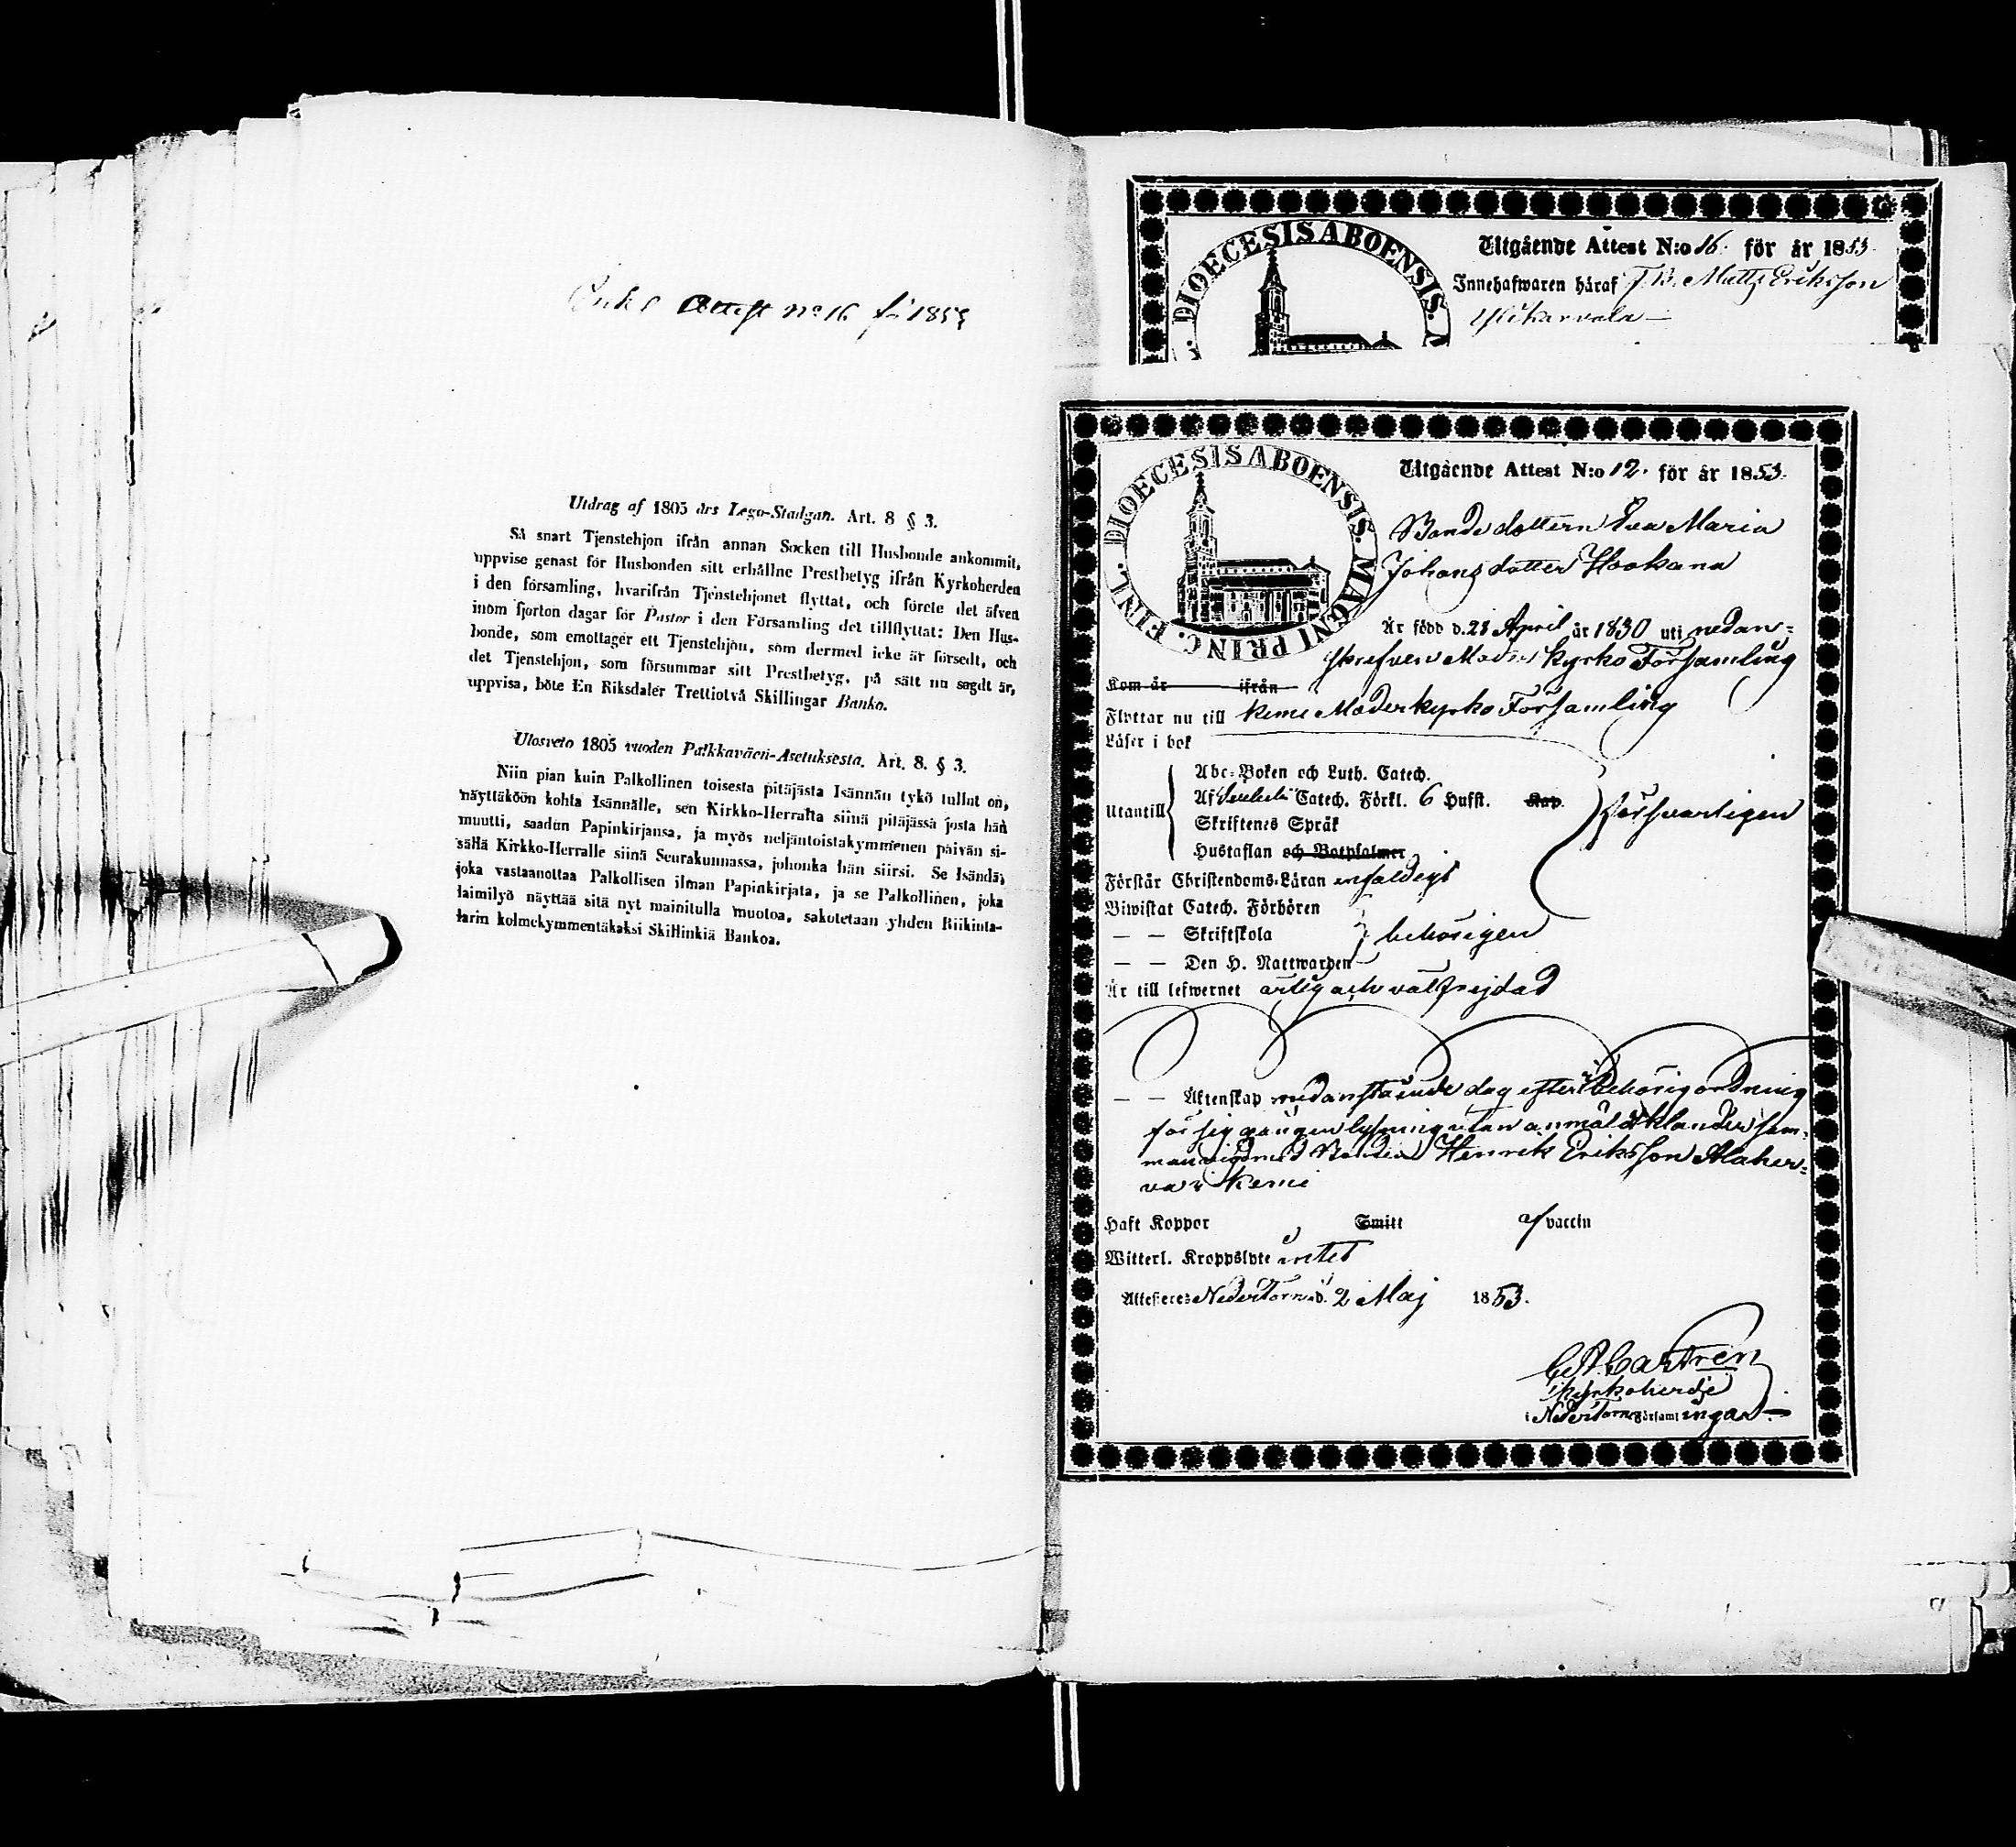 Attest No 16 för 1853
Utdrag af 1805 års Lego-Stadgan. Art. 8 § 3.
Så snart Tjenstehjon ifrån annan Socken till Husbonde ankommit,
uppvise genast för Husbonden sitt erhållne Prestbetyg ifrån Kyrkoherden
i den församling, hvarifrån Tjenstehjonet flyttat, och förete det äfven
inom fjorton dagar för Pastor i den Församling det tillflyttat: Den Hus-
bonde, som emottager ett Tjenstehjon, som dermed icke är försedt, och
det Tjenstehjon, som försummar sitt Prestbetyg, på sätt nu sagdt är,
uppvisa, böte En Riksdaler Trettiotvå Skillingar Banko.
Ulosveto 1805 vuoden Palkkaväen-Asetuksesta. Art. 8. § 3.
Niin pian kuin Palkollinen toisesta pitäjästä Isännän tykö tullut on,
näyttäköön kohta Isännälle, sen Kirkko-Herralta siinä pitäjässä josta hän
muutti, saadun Papinkirjansa, ja myös neljäntoistakymmenen päivän si-
sällä Kirkko-Herralle siinä Seurakunnassa, johonka hän siirsi. Se Isändä,
joka vastaanottaa Palkollisen ilman Papinkirjata, ja se Palkollinen, joka
laimilyö näyttää sitä nyt mainitulla muotoa, sakotetaan yhden Riikinta-
larin kolmekymmentäkaksi Skillinkiä Bankoa.
DIOECESIS ABOENSIS.
Utgående Attest N:o 16. för år 1853.
Innehafwaren häraf Matts Eriksson
DIOECESIS ABOENSIS. MAGNI PRINC. FINL.
Utgående Attest N:o 12. för år 1853.
Bondedottern Eva Maria
Johans dotter Hookana
Är född d. 28 April år 1830 uti nedan-
skrefven Moderkyrko Församling
Kom år ifrån
Flyttar nu till Kemi Moderkyrko Församling
Läser i bok
Abc-Boken och Luth. Catech.
Utantill Af Svebelii Catech. Förkl. 6 Hufst. Kap. försvarligen
Skriftenes Språk
Hustaflan och Botpsalmer
Förstår Christendoms-Läran enfaldigt
Biwistat Catech. Förhören
— — Skriftskola behörigen
— — Den H. Nattwarden
Är till lefwernet ärlig och välfrejdad
— — Äktenskap nedanstående dag efter i behörig ordning
för sig gången lysning utan anmäldt klander sam-
manvigd med Bonden Henrik Eriksson Alaher-
va i Kemi
Haft Koppor Smitt af vaccin
Witterl. Kroppslyte intet
Attesteres NederTorneå d. 2 Maj 1853.
Castrén
Kyrkoherde
i NederTorneå Församlingar